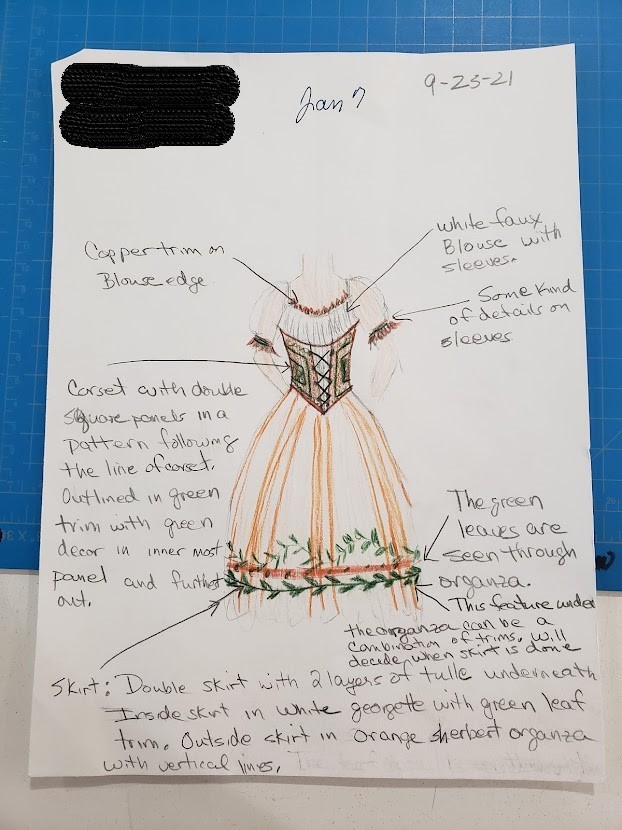 Jan 7
9-23-21
Copper trim on
Blouse edge
white faux
Blouse with
sleeves.
Some Kind
of details on
sleeves
Corset with double
square panels in a
pattern following
the line of corset.
Outlined in green
trim with green
decor in inner most
panel and furthest
out.
The green
leaves are
seen through
organza.
This feature under
the organza can be a
combination of trims. Will
decide when skirt is done
Skirt: Double skirt with 2 layers of tulle underneath
Inside skirt in white georgette with green leaf
trim. Outside skirt in orange sherbert organza
with vertical lines.